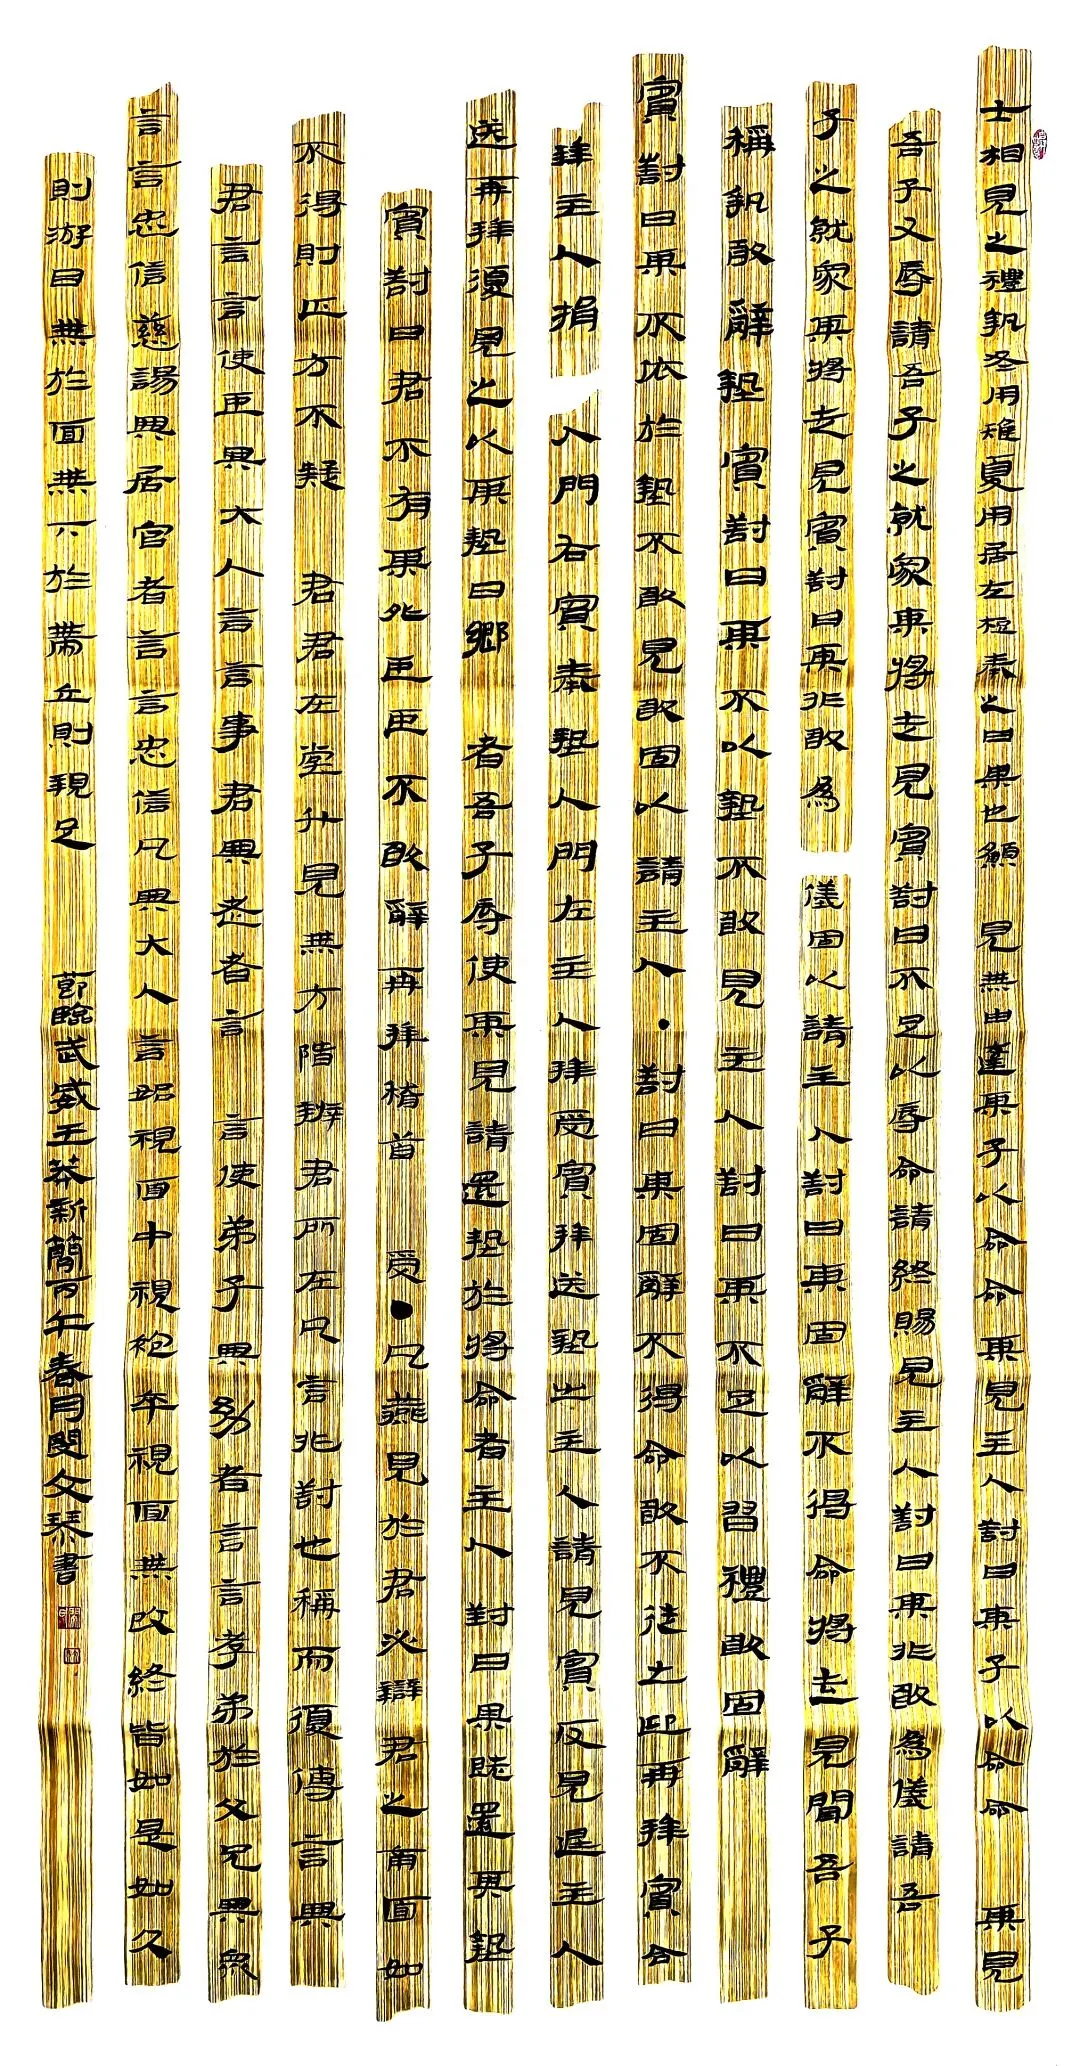 士相見之禮執冬用雉夏用居左梪奉之曰某也願見無由達某子以命命某見主人對曰某子以命命某見
吾子又辱請吾子之就家某將走見賓對曰不足以辱命請終賜見主人對曰某非敢為儀請吾
子之就家某將走見賓對曰某非敢為儀固以請主人對曰某固辭不得命將走見聞吾子
稱執敢辭執賓對曰某不以執不敢見主人對曰某不足以習禮敢固辭
賓對曰某不依於執不敢見敢固以請主人·對曰某固辭不得命敢不從之再拜賓合
拜主人揖入門右賓奉執入門左主人拜受賓拜送執出主人請見賓反見退主人
送再拜復見之以其執曰鄉者吾子辱使某見請還執於將命者主人對曰某既還某執
賓對曰君不有某外臣臣不敢辭再拜稽首受●凡燕見於君必辯君之南面如
不得則正方不疑君君在堂升見無方階辨君所在凡言非對也稱而復傳言與
君言言使臣與大人言言事君與老者言言使弟子與幼者言言孝弟於父兄與眾
言言忠信慈諹與居官者言言忠信凡與大人言始視面中視袍卒視面無改終皆如是如父
則游目無於面無下於帶立則視足 節臨武威王莽新簡丙午春月閔文琴書